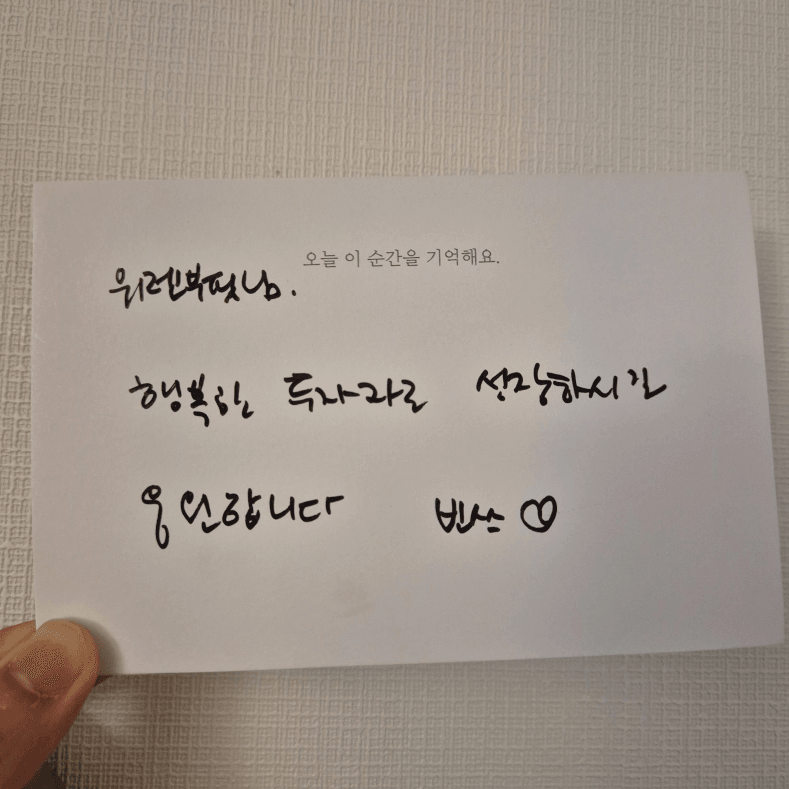 오늘 이 순간을 기억해요.
워렌부핏님.
행복한 투자자로 성장하시길
응원합니다 빈쓰♡